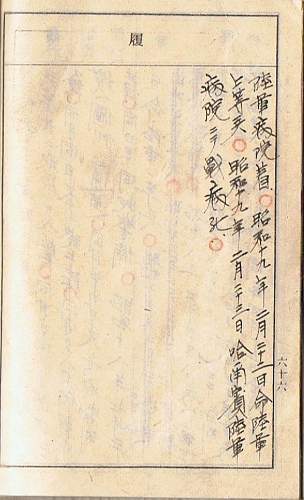 履
陸軍病院着○昭和十九年二月二十二日命陸軍
上等兵○昭和十九年二月二十三日哈爾賓陸軍
病院ニテ戰病死○
六十六